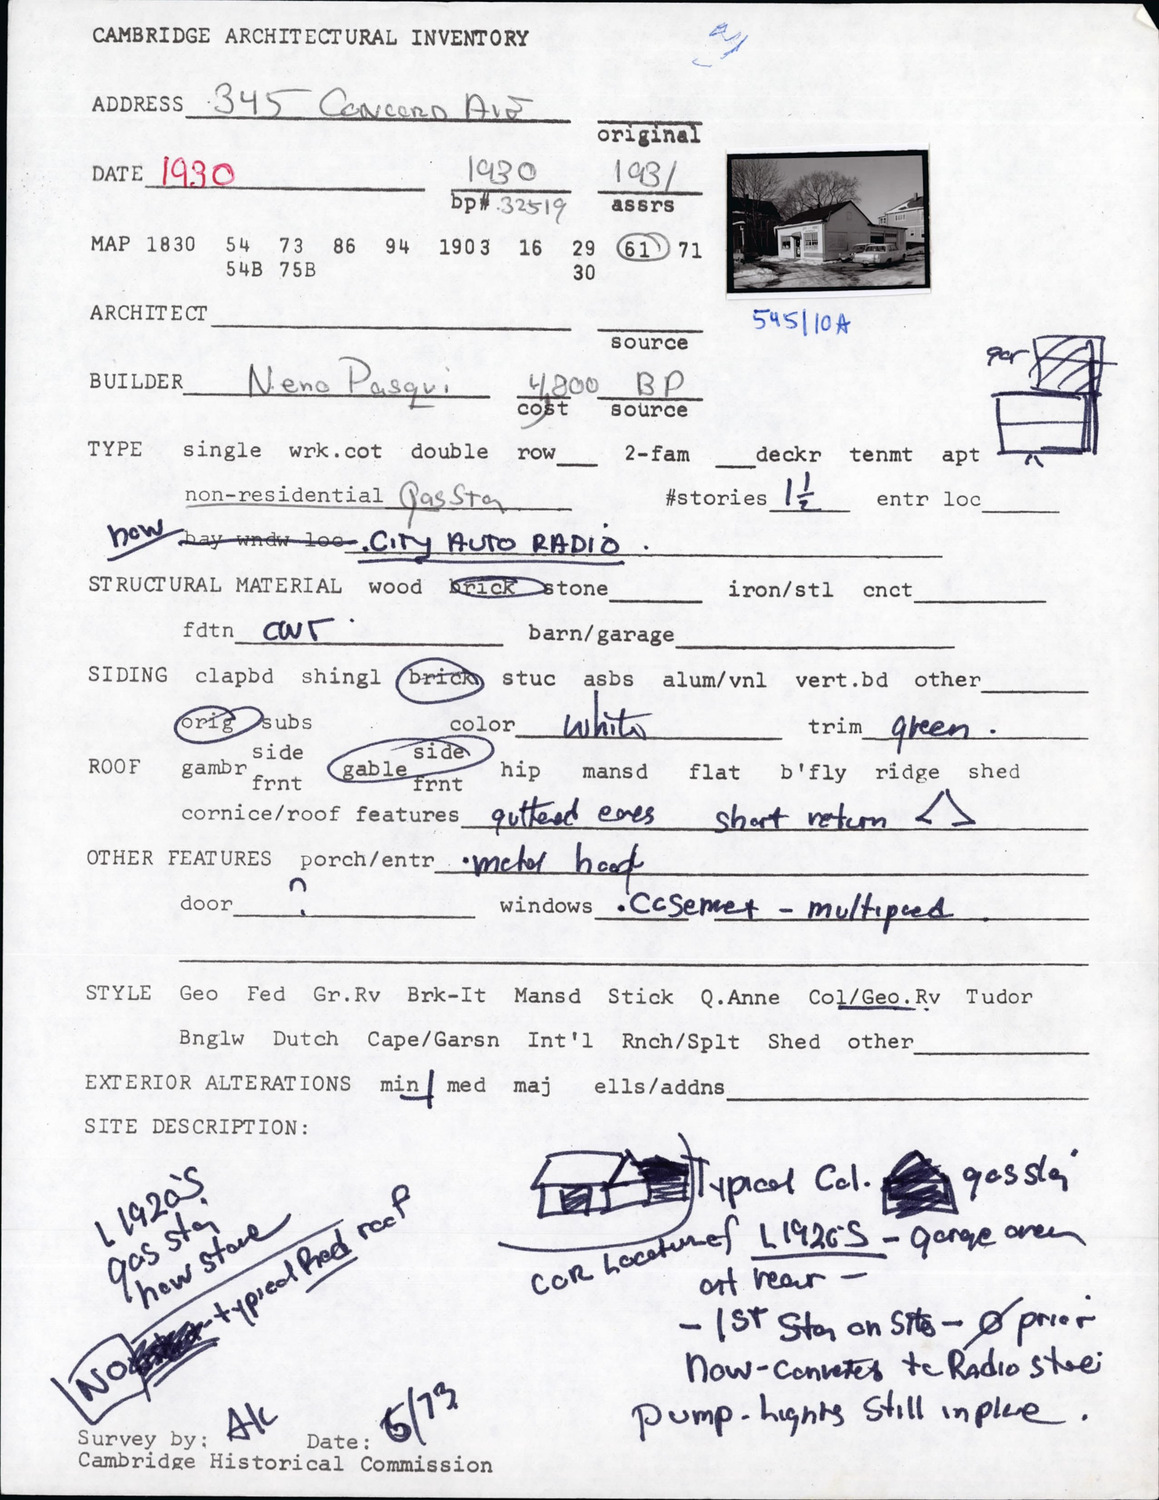 CAMBRIDGE ARCHITECTURAL INVENTORY
ADDRESS 345 Concord Ave
original
DATE 1930 1930 1931
bp# 32519 assrs
MAP 1830 54 73 86 94 1903 16 29 61 71
54B 75B 30
545/10A
ARCHITECT
source
gar
BUILDER Neno Pasqui 4,800 BP
cost source
TYPE single wrk.cot double row 2-fam deckr tenmt apt
non-residential Gas Sta #stories 1½ entr loc
now bay wndw loc CITY AUTO RADIO.
STRUCTURAL MATERIAL wood brick stone iron/stl cnct
fdtn barn/garage
SIDING clapbd shingl brick stuc asbs alum/vnl vert.bd other
orig subs color white trim green.
side side
ROOF gambr gable hip mansd flat b'fly ridge shed
frnt frnt
cornice/roof features guttered eaves short return
OTHER FEATURES porch/entr metal hood
door ? windows Casemet - multipaed
STYLE Geo Fed Gr.Rv Brk-It Mansd Stick Q.Anne Col/Geo.Rv Tudor
Bnglw Dutch Cape/Garsn Int'l Rnch/Splt Shed other
EXTERIOR ALTERATIONS min med maj ells/addns
SITE DESCRIPTION:
L1920'S
gas sta
now store
NO typical roof
Typical Col. gas sta
cor Location of L1920'S - garage area
at rear -
- 1ST Sta on Site - Ø prior
Now - Converted to Radio store
pump-lights Still in place.
Survey by: AK Date: 5/73
Cambridge Historical Commission